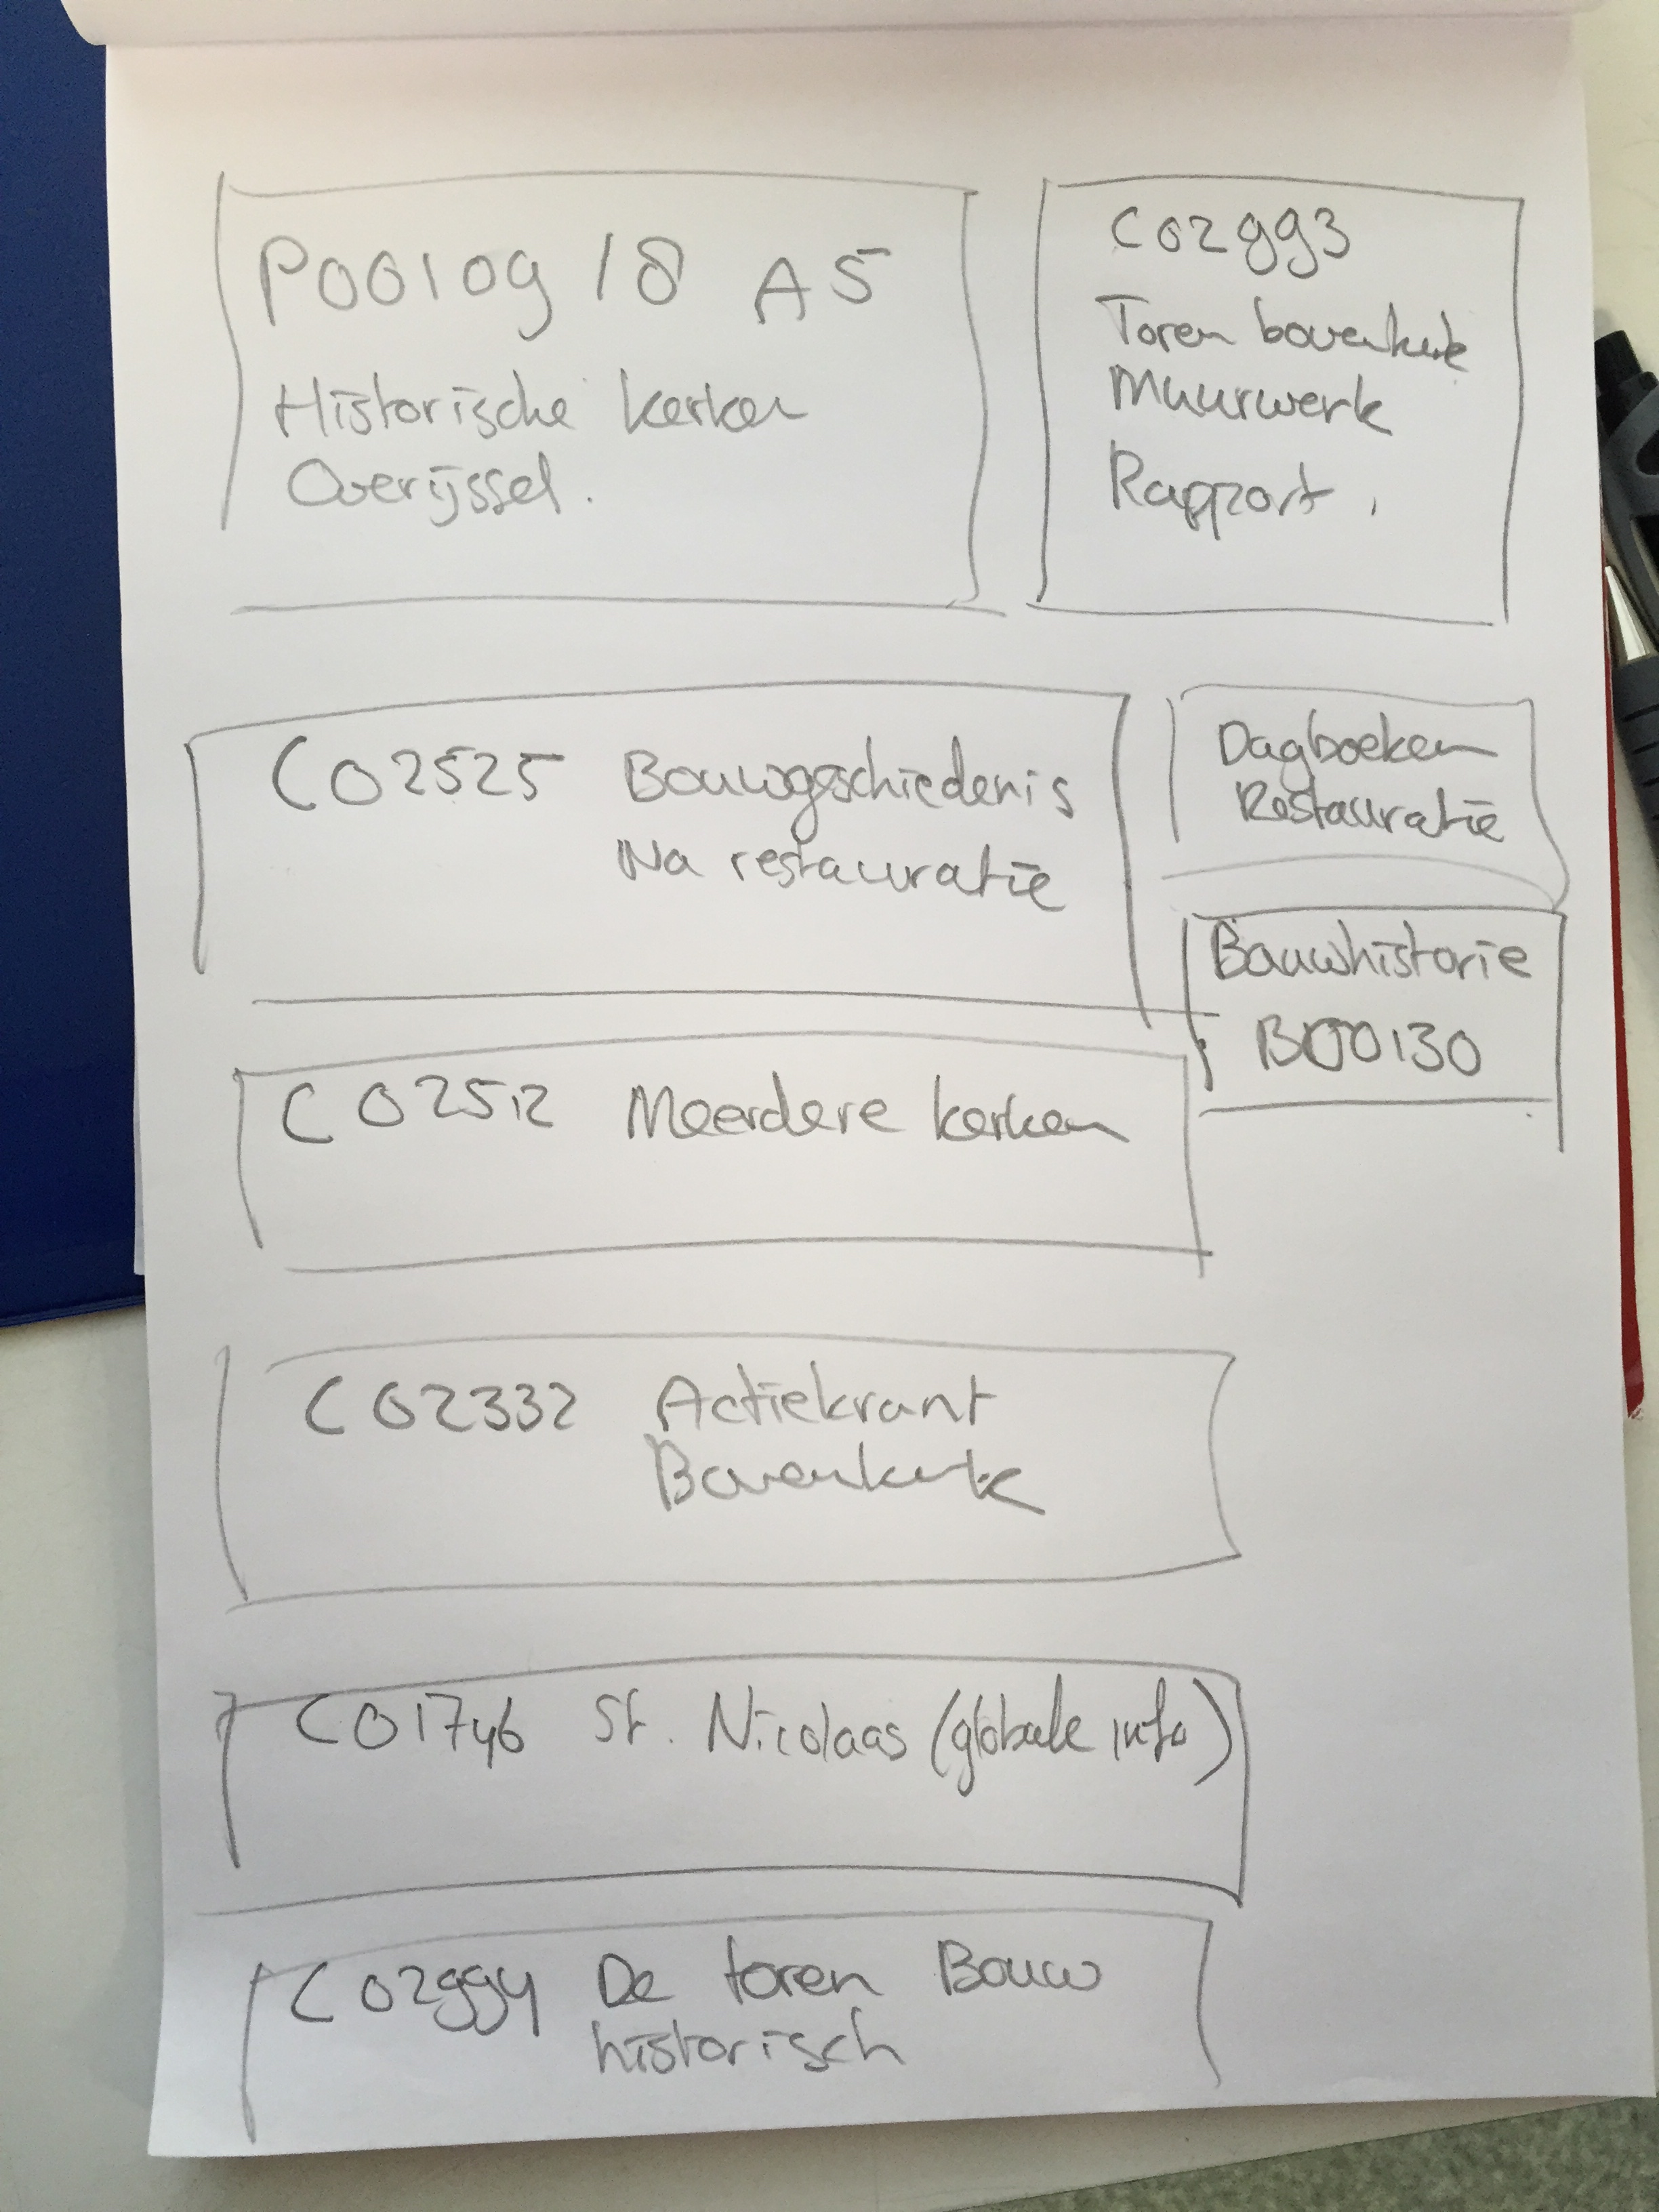 P00109 18 A5
Historische kerken
Overijssel.
C02993
Toren bovenkerk
Muurwerk
Rapport.
C02525 Bouwgeschiedenis
Na restauratie
Dagboeken
Restauratie
Bouwhistorie
B00130
C02512 Meerdere kerken
C02332 Actiekrant
Bovenkerk
C01746 St. Nicolaas (globale info)
C02994 De toren Bouw
historisch